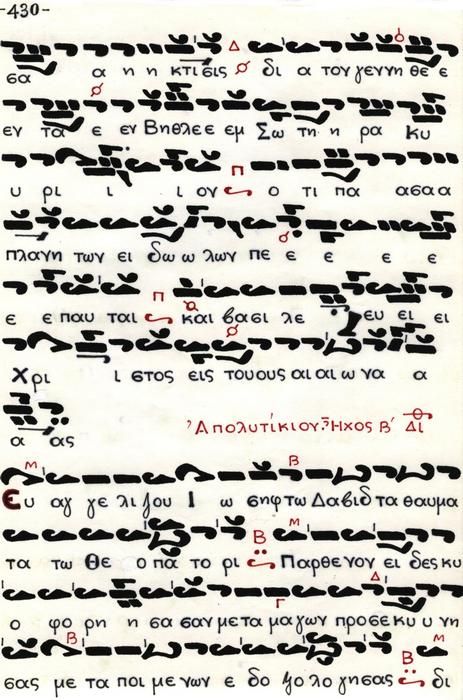 -430-
σα α η η κτι σις δι α τον γεννη θε ε
εν τα ε εν Βηθλεε εμ Σω τη η ρα Κυ
υ ρι ι ι ον ο τι πα ασαα
πλανη των ει δω ω λων πε ε ε ε ε
ε ε παυ ται και βασι λε ευ ει ει
Χρι ι στος εις τουους αι αι ω να α
α ας
Ἀπολυτίκιον. Ἦχος Β΄ Δι
Ευ αγ γε λι ζου Ι ω σηφ τω Δαβιδ τα θαυμα
τα τω Θε ο πα το ρι Παρθενον ει δες κυ
ο φο ρη η σα σαν μετα μαγων προσε κυ υ νη
σας με τα ποι με νων ε δο ξο λο γησας δι